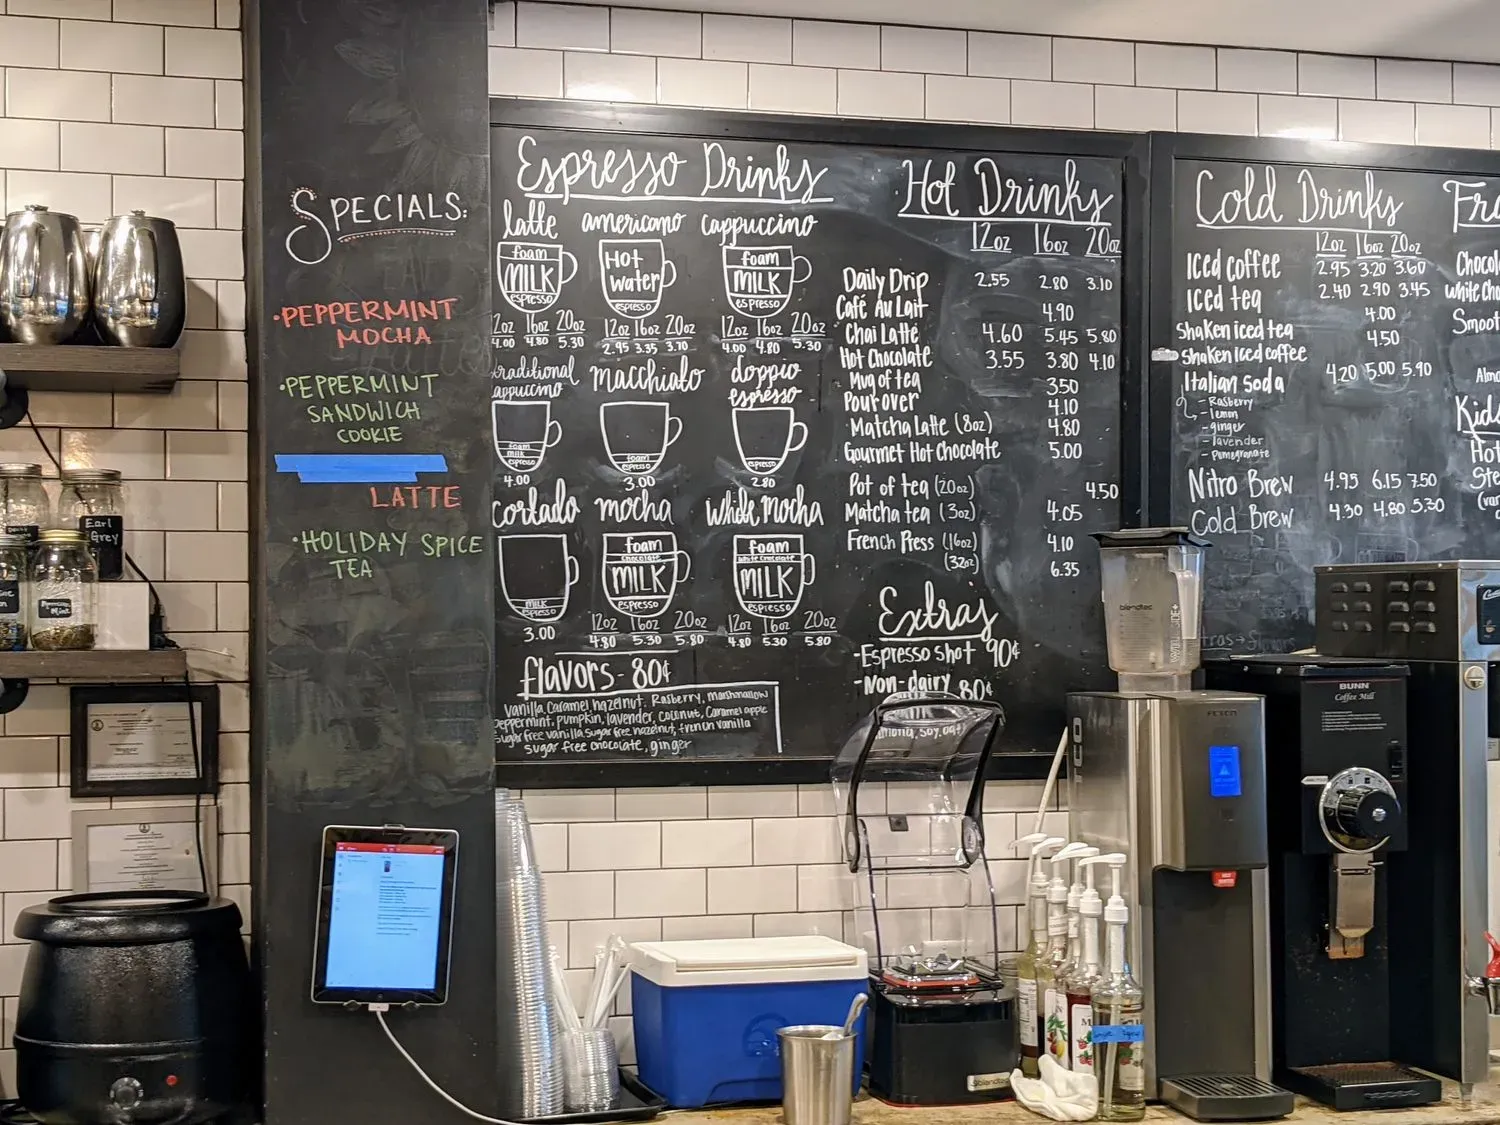 SPECIALS:
·PEPPERMINT
MOCHA
·PEPPERMINT
SANDWICH
COOKIE
LATTE
·HOLIDAY SPICE
TEA
Espresso Drinks
latte americano cappuccino
foam MILK espresso
Hot water espresso
foam MILK espresso
12oz 16oz 20oz
4.00 4.80 5.30
12oz 16oz 20oz
2.95 3.35 3.70
12oz 16oz 20oz
4.00 4.80 5.30
traditional cappuccino
macchiato
doppio espresso
foam milk espresso
foam espresso
espresso
4.00
3.00
2.80
cortado mocha white mocha
milk espresso
foam chocolate MILK espresso
foam white chocolate MILK espresso
3.00
12oz 16oz 20oz
4.80 5.30 5.80
12oz 16oz 20oz
4.80 5.30 5.80
flavors- 80¢
vanilla, caramel, hazelnut, Rasberry, marshmallow
peppermint, pumpkin, lavender, coconut, caramel apple
sugar free vanilla, sugar free hazelnut, french vanilla
sugar free chocolate, ginger
Hot Drinks
12oz 16oz 20oz
Daily Drip 2.55 2.80 3.10
Café Au Lait 4.90
Chai Latte 4.60 5.45 5.80
Hot Chocolate 3.55 3.80 4.10
Mug of tea 3.50
Pour over 4.10
Matcha Latte (8oz) 4.80
Gourmet Hot Chocolate 5.00
Pot of tea (20oz) 4.50
Matcha tea (3oz) 4.05
French Press (16oz) 4.10
(32oz) 6.35
Extras
-Espresso shot 90¢
-Non-dairy 80¢
soy, oat)
Cold Drinks
12oz 16oz 20oz
Iced coffee 2.95 3.20 3.60
Iced tea 2.40 2.90 3.45
Shaken iced tea 4.00
Shaken iced coffee 4.50
Italian soda 4.20 5.00 5.90
- Rasberry
- lemon
- ginger
- lavender
- Pomegranate
Nitro Brew 4.95 6.15 7.50
Cold Brew 4.30 4.80 5.30
White Choc
Smoot
Kids
Hot
Earl
Grey
blendtec
WILDSIDE+
FETCO
BUNN
Coffee Mill
blendtec